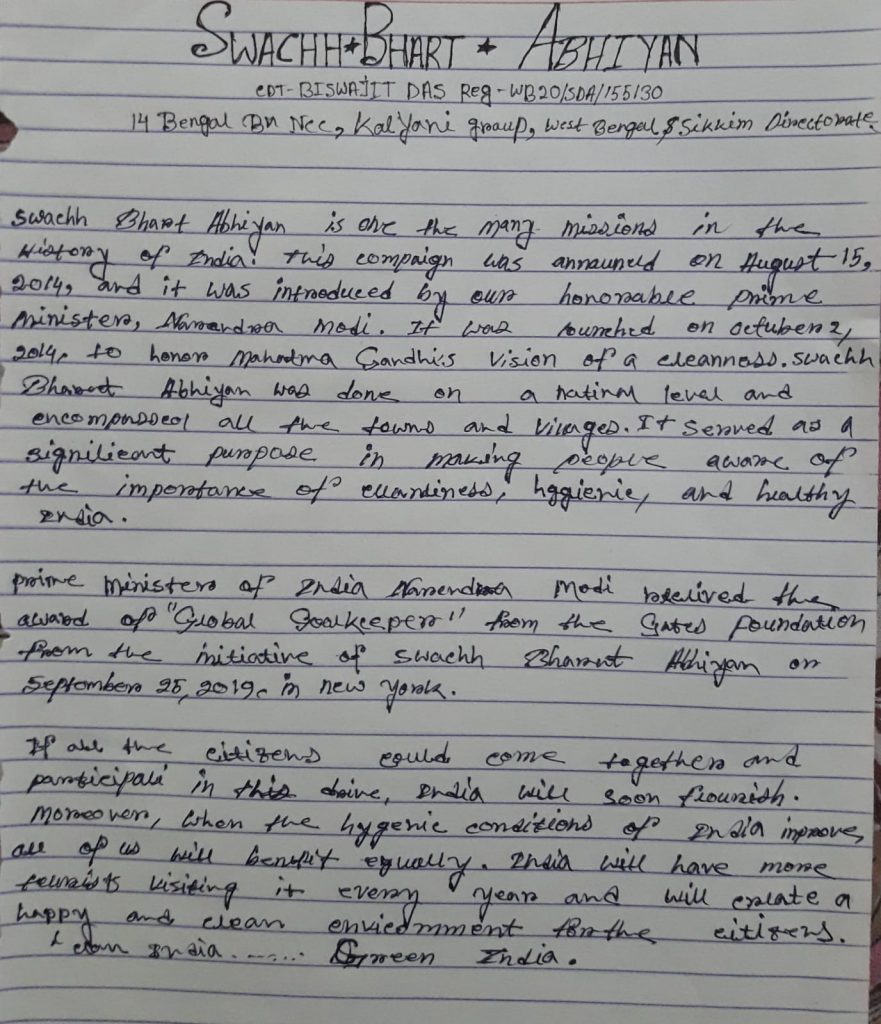 SWACHH★BHART ★ ABHIYAN
CDT- BISWAJIT DAS Reg - WB20/SDA/155130
14 Bengal Bn Ncc, Kalyani group, West Bengal & Sikkim Directorate.
Swachh Bharat Abhiyan is one the many missions in the
History of India. This compaign was announced on August 15,
2014, and it was introduced by our honorable prime
minister, Narendra Modi. It was lounched on octuber 2,
2014, to honor Mahatma Gandhi's vision of a cleanness. Swachh
Bharat Abhiyan was done on a nationl level and
encompassed all the towns and villages. It served as a
significant purpose in making people aware of
the importance of cleanliness, hygienic, and healthy
India.
prime minister of India Narendra Modi received the
award of "Global Goalkeeper" from the Gates foundation
from the initiative of swachh Bharat Abhiyan on
September 25, 2019. in new york.
If all the citizens could come together and
participate in this drive, India will soon flourish.
Moreover, when the hygenic conditions of India improve,
all of us will benefit equally. India will have more
tourists visiting it every year and will create a
happy and clean enviornment for the citizens.
India....... Green India.